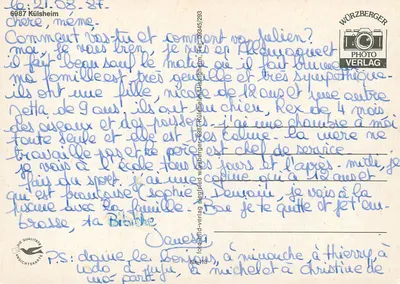 le 21.08.87.
6987 Külsheim
chère, mémé.
Comment vas-tu et comment va Julien?
moi, je vais bien, je suis en Allemagne et
il fait beau sauf le matin où il fait brume
ma famille est très gentille et très sympathique
ils ont une fille nicole de 12 ans et une autre
netta de 9 ans. ils ont un chien. Rex de 4 mois
des oiseaux et des poissons. j'ai une chambre à moi
toute seule et elle est très calme. la mère ne
travaille pas et le père est chef de service.
je vais à l'école tous les jours et l'après-midi, je
fais du sport, j'ai une copine qui a 12 ans et
qui est brousse (sophie). Demain, je vais à la
piscine avec la famille. Bon je te quitte et je t'em-
brasse, ta Bibiche
Vanessa
PS: donne le bonjour, à minouche, à thierry, à
dodo à juju, à michel et à christine de
ma part.
WÜRZBURGER
PHOTO
VERLAG